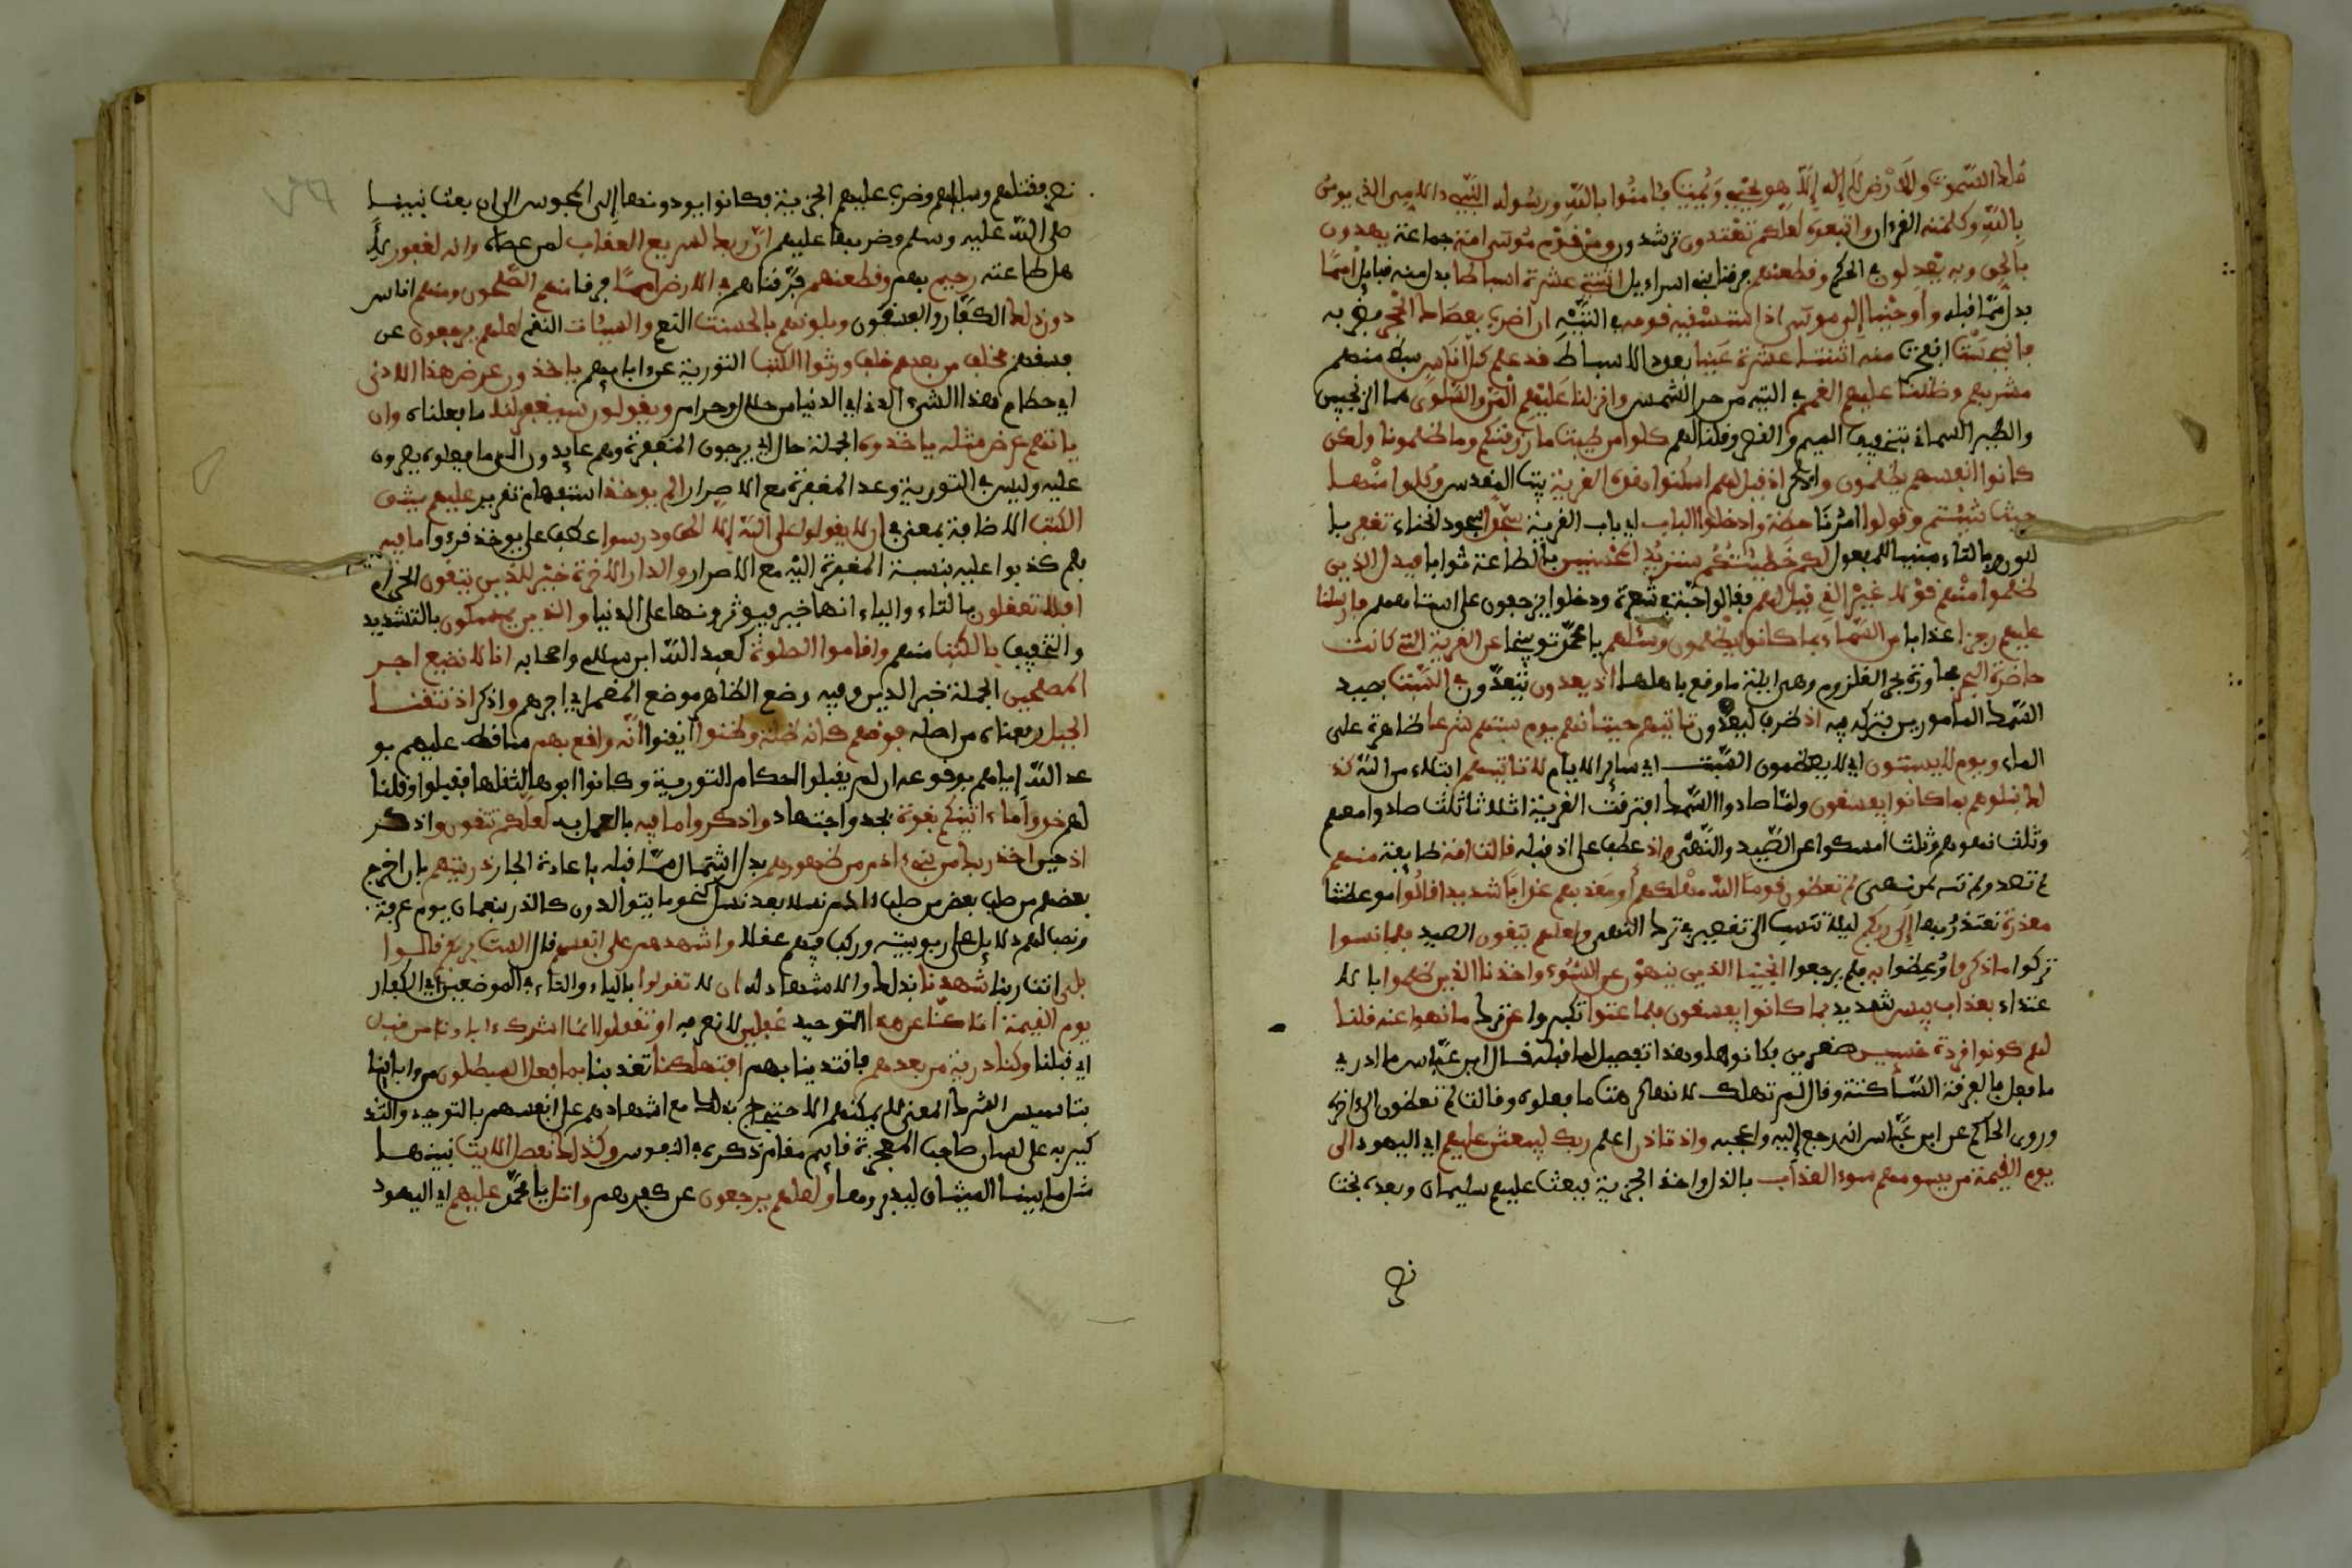 ملك السموت والارض لا إله إلا هو يحيي ويميت فءامنوا بالله ورسوله النبيء الامي الذي يومن
بالله وكلمته القرءان واتبعوه لعلكم تهتدون ترشدون ومن قوم موسى امة جماعة يهدون
بالحق وبه يعدلون في الحكم وقطعنهم فرقنا بني اسراءيل اثنتي عشرة اسباطا بدل منه قبايل امما
بدل مما قبله وأوحينا إلى موسى اذ استسقيه قومه في التيه ان اضرب بعصاك الحجر فضربه
فانبجست انفجرت منه اثنتا عشرة عينا بعدد الاسباط قد علم كل اناس سبط منهم
مشربهم وظللنا عليهم الغمم في التيه من حر الشمس وانزلنا عليهم المن والسلوى هما الترنجبين
والطير السمانى بتخفيف الميم والقصر وقلنا لهم كلوا من طيبت ما رزقنكم وما ظلمونا ولكن
كانوا انفسهم يظلمون واذكر اذ قيل لهم اسكنوا هذه القرية بيت المقدس وكلوا منها
حيث شيتم وقولوا امرنا حطة وادخلوا الباب اي باب القرية سجدا سجود انحناء تغفر بـا
لنون وبالتاء مبنيا للمفعول لكم خطيئتكم سنزيد المحسنين بالطاعة ثوابا فبدل الذين
ظلموا منهم قولا غير الذي قيل لهم فقالوا حبة في شعرة ودخلوا يزحفون على استاههم فارسلنا
عليهم رجزا عذابا من السماء بما كانوا يظلمون وسئلهم يا محمد توبيخا عن القرية التي كانت
حاضرة البحر مجاورة بحر القلزم وهي ايلة ما وقع باهلها اذ يعدون يتعدون في السبت بصيد
السمك المامورين بتركه فيه اذ ظرف ليعدون تاتيهم حيتانهم يوم سبتهم شرعا ظاهرة على
الماء ويوم لا يسبتون اي لا يعظمون السبت اي ساير الايام لا تاتيهم ابتلاء من الله كذ
لك نبلوهم بما كانوا يفسقون ولما صادوا السمك افترقت القرية اثلاثا ثلث صادوا معهم
وثلث نهوهم وثلث امسكوا عن الصيد والنهي واذ عطف على اذ قبله قالت امة طايفة منهم
لم تصد ولم تنه لمن نهى لم تعظون قوما الله مهلكهم أو معذبهم عذابا شديدا قالوا موعظتنا
معذرة نعتذر بها إلى ربكم ليلا ننسب الى تقصير في ترك النهي ولعلهم يتقون الصيد فلما نسوا
تركوا ما ذكروا وعظوا به فلم يرجعوا انجينا الذين ينهون عن السوء واخذنا الذين ظلموا بالا
عتداء بعذاب بيس شديد بما كانوا يفسقون فلما عتوا تكبروا عن ترك ما نهوا عنه قلنا
لهم كونوا قردة خسين صغرين فكانوها وهذا تفصيل لما قبله قال ابن عباس ما ادري
ما فعل بالفرقة الساكتة وقال لم تهلك لانها كرهت ما فعلوه وقالت لم تعظون الى اخره
وروى الحاكم عن ابن عباس انه رجع إليه واعجبه واذ تاذن اعلم ربك ليبعثن عليهم اي اليهود الى
يوم القيمة من يسومهم سوء العذاب بالذل واخذ الجزية فبعث عليهم سليمان وبعده بخت
نصر
نصر فقتلهم وسباهم وضرب عليهم الجزية فكانوا يودونها إلى المجوس الى ان بعث نبينا
صلى الله عليه وسلم وضربها عليهم ان ربك لسريع العقاب لمن عصاه وانه لغفور لأ
هل طاعته رحيم بهم وقطعنهم فرقناهم في الارض امما فرقا منهم الصلحون ومنهم اناس
دون ذلك الكفار والفسقون وبلونهم بالحسنت النعم والسيئات النقم لعلهم يرجعون عن
فسقهم فخلف من بعدهم خلف ورثوا الكتب التورية عن ءابايهم ياخذون عرض هذا الادنى
اي حطام هذا الشيء الدني اي الدنيا من حلال وحرام ويقولون سيغفر لنا ما فعلناه وان
ياتهم عرض مثله ياخذوه الجملة حال اي يرجون المغفرة وهم عايدون الى ما فعلوه مصرون
عليه وليس في التورية وعد المغفرة مع الاصرار الم يوخذ استفهام تقرير عليهم ميثق
الكتب الاضافة بمعنى في ان لا يقولوا على الله إلا الحق ودرسوا عطف على يوخذ قرءوا ما فيه
فلم كذبوا عليه بنسبة المغفرة اليه مع الاصرار والدار الاخرة خير للذين يتقون الحرام
افلا تعقلون بالتاء والياء انها خير فيوثرونها على الدنيا والذين يمسكون بالتشديد
والتخفيف بالكتب منهم واقاموا الصلوة كعبد الله ابن سلام واصحابه انا لا نضيع اجر
المصلحين الجملة خبر الذين وفيه وضع الظاهر موضع المضمر اي اجرهم واذكر اذ نتقنا
الجبل رفعناه من اصله فوقهم كانه ظلة وظنوا أيقنوا انه واقع بهم ساقط عليهم بو
عد الله إياهم بوقوعه ان لم يقبلوا احكام التورية وكانوا ابوها لثقلها فقبلوا وقلنا
لهم خذوا ما ءاتينكم بقوة بجد واجتهاد واذكروا ما فيه بالعمل به لعلكم تتقون واذكر
اذ حين اخذ ربك من بني ءادم من ظهورهم بدل اشتمال مما قبله باعادة الجار ذريتهم بان اخرج
بعضهم من صلب بعض من صلب ءادم نسلا بعد نسل كنحو ما يتوالدون كالذر بنعمان يوم عرفة
ونصب لهم دلايل على ربوبيته وركب فيهم عقلا واشهدهم على انفسهم قال الست بربكم قالوا
بلى انت ربنا شهدنا بذلك والاشهاد لـ ان لا تقولوا بالياء والتاء في الموضعين اي الكفار
يوم القيمة انا كنا عن هذا التوحيد غفلين لا نعرفه او تقولوا انما اشرك ءاباونا من قبل
اي قبلنا وكنا ذرية من بعدهم فاقتدينا بهم افتهلكنا تعذبنا بما فعل المبطلون من ءابائنا
بتاسيس الشرك المعنى لا يمكنهم الاحتجاج بذلك مع اشهادهم على انفسهم بالتوحيد والتذ
كير به على لسان صاحب المعجزة قايم مقام ذكره في النفوس وكذلك نفصل الايت نبينها
مثل ما بينا الميثاق ليتدبروها ولعلهم يرجعون عن كفرهم واتل يا محمد عليهم اي اليهود